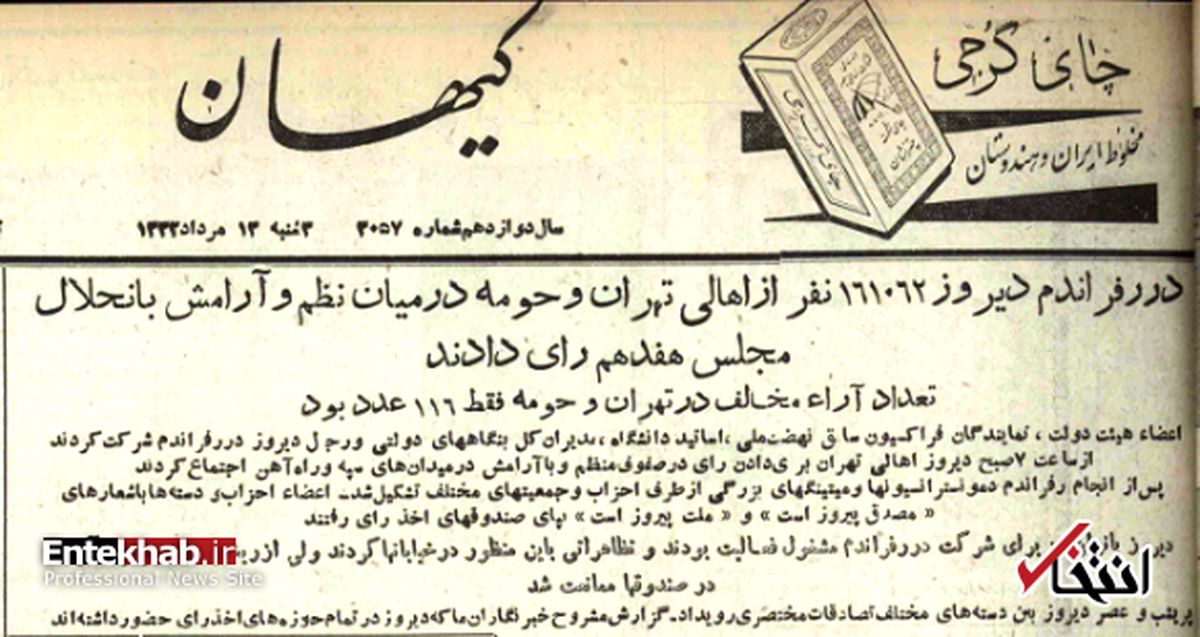 کیهان
چای گرجی
مخلوط ایران و هندوستان
سال دوازدهم شماره ۳۰۵۷ ۳ شنبه ۱۳ مرداد ۱۳۳۲
در رفراندم دیروز ۱۶۱۰۶۲ نفر از اهالی تهران و حومه در میان نظم و آرامش بانحلال
مجلس هفدهم رای دادند
تعداد آراء مخالف در تهران و حومه فقط ۱۱۶ عدد بود
اعضاء هیئت دولت ، نمایندگان فراکسیون سابق نهضت ملی ، اساتید دانشگاه ، مدیران کل بنگاههای دولتی و رجال دیروز در رفراندم شرکت کردند
از ساعت ۷ صبح دیروز اهالی تهران برای دادن رای در صفوف منظم و با آرامش در میدان‌های سپه و راه آهن اجتماع کردند
پس از انجام رفراندم دمونستراسیونها و میتینگهای بزرگی از طرف احزاب و جمعیتهای مختلف تشکیل شد ـ اعضاء احزاب و دسته ها با شعارهای
« مصدق پیروز است » و « ملت پیروز است » بپای صندوقهای اخذ رای رفتند
برای شرکت در رفراندم مشغول فعالیت بودند و تظاهراتی باین منظور در خیابانها کردند ولی از
در صندوقها ممانعت شد
پریشب و عصر دیروز بین دسته های مختلف تصادفات مختصری رویداد ـ گزارش مشروح خبرنگاران ما که دیروز در تمام حوزه های اخذ رای حضور داشته اند
Entekhab.ir
Professional News Site
انتخاب